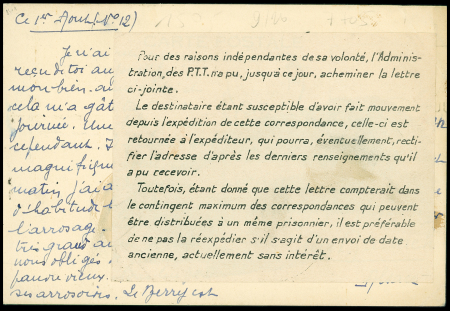 Ce 1er Août (No 12)
Pour des raisons indépendantes de sa volonté, l'Adminis-
tration, des P.T.T. n'a pu, jusqu'à ce jour, acheminer la lettre
ci-jointe.
Le destinataire étant susceptible d'avoir fait mouvement
depuis l'expédition de cette correspondance, celle-ci est
retournée à l'expéditeur, qui pourra, éventuellement, recti-
fier l'adresse d'après les derniers renseignements qu'il
a pu recevoir.
Toutefois, étant donné que cette lettre compterait dans
le contingent maximum des correspondances qui peuvent
être distribuées à un même prisonnier, il est préférable
de ne pas la réexpédier s'il s'agit d'un envoi de date
ancienne, actuellement sans intérêt.
J'ai
reçu de toi au
mon bien.
cela m'a gât
journée. Une
cependant.
magnifique
matin, j'ai a
d'habitude
l'arrosage.
très grand
nous obligés
pauvre vieux.
ses arrosoirs. Le Berry est